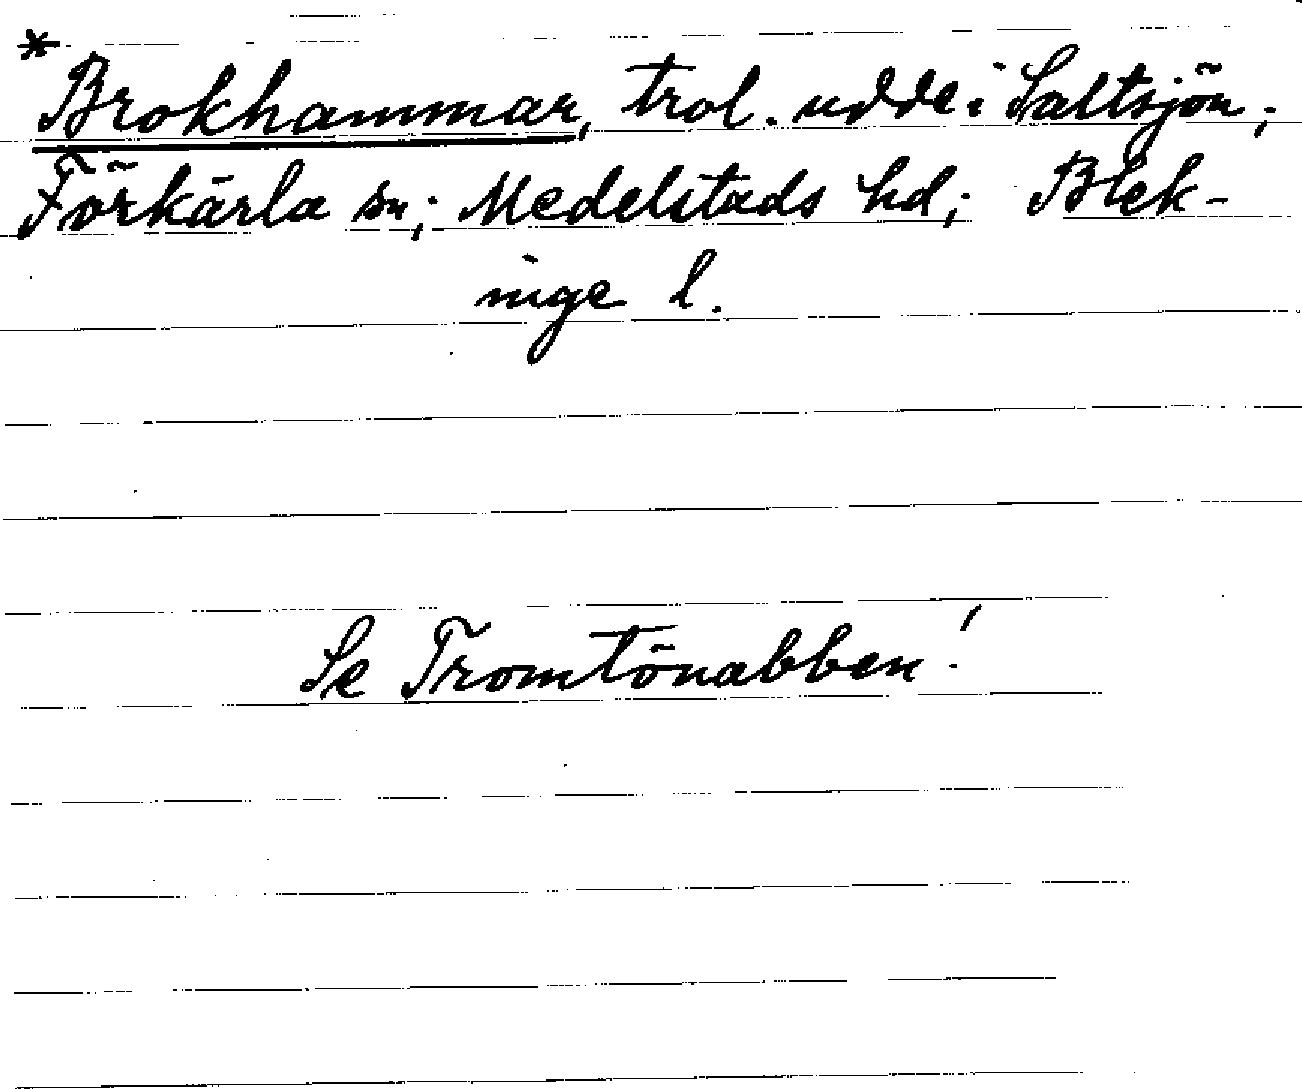 *Brokhammar, trol. udde i Saltsjön;
Förkärla sn; Medelstads hd; Blek-
inge l.
Se Tromtönabben!